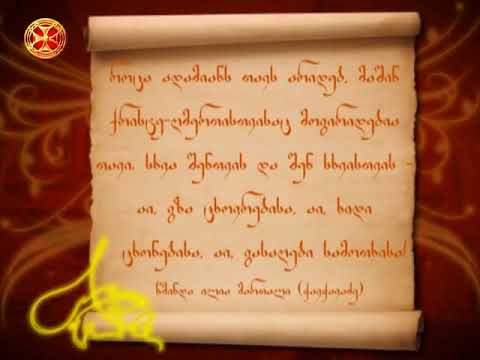 როცა ადამიანს თავს არიდებ, მაშინ
ქრისტე-ღმერთისთვისაც მოგირიდებია
თავი. სხვა შენთვის და შენ სხვისთვის -
აი, გზა ცხოვრებისა, აი, ხიდი
ცხონებისა, აი, გასაღები სამოთხისა!
წმინდა ილია მართალი (ჭავჭავაძე)